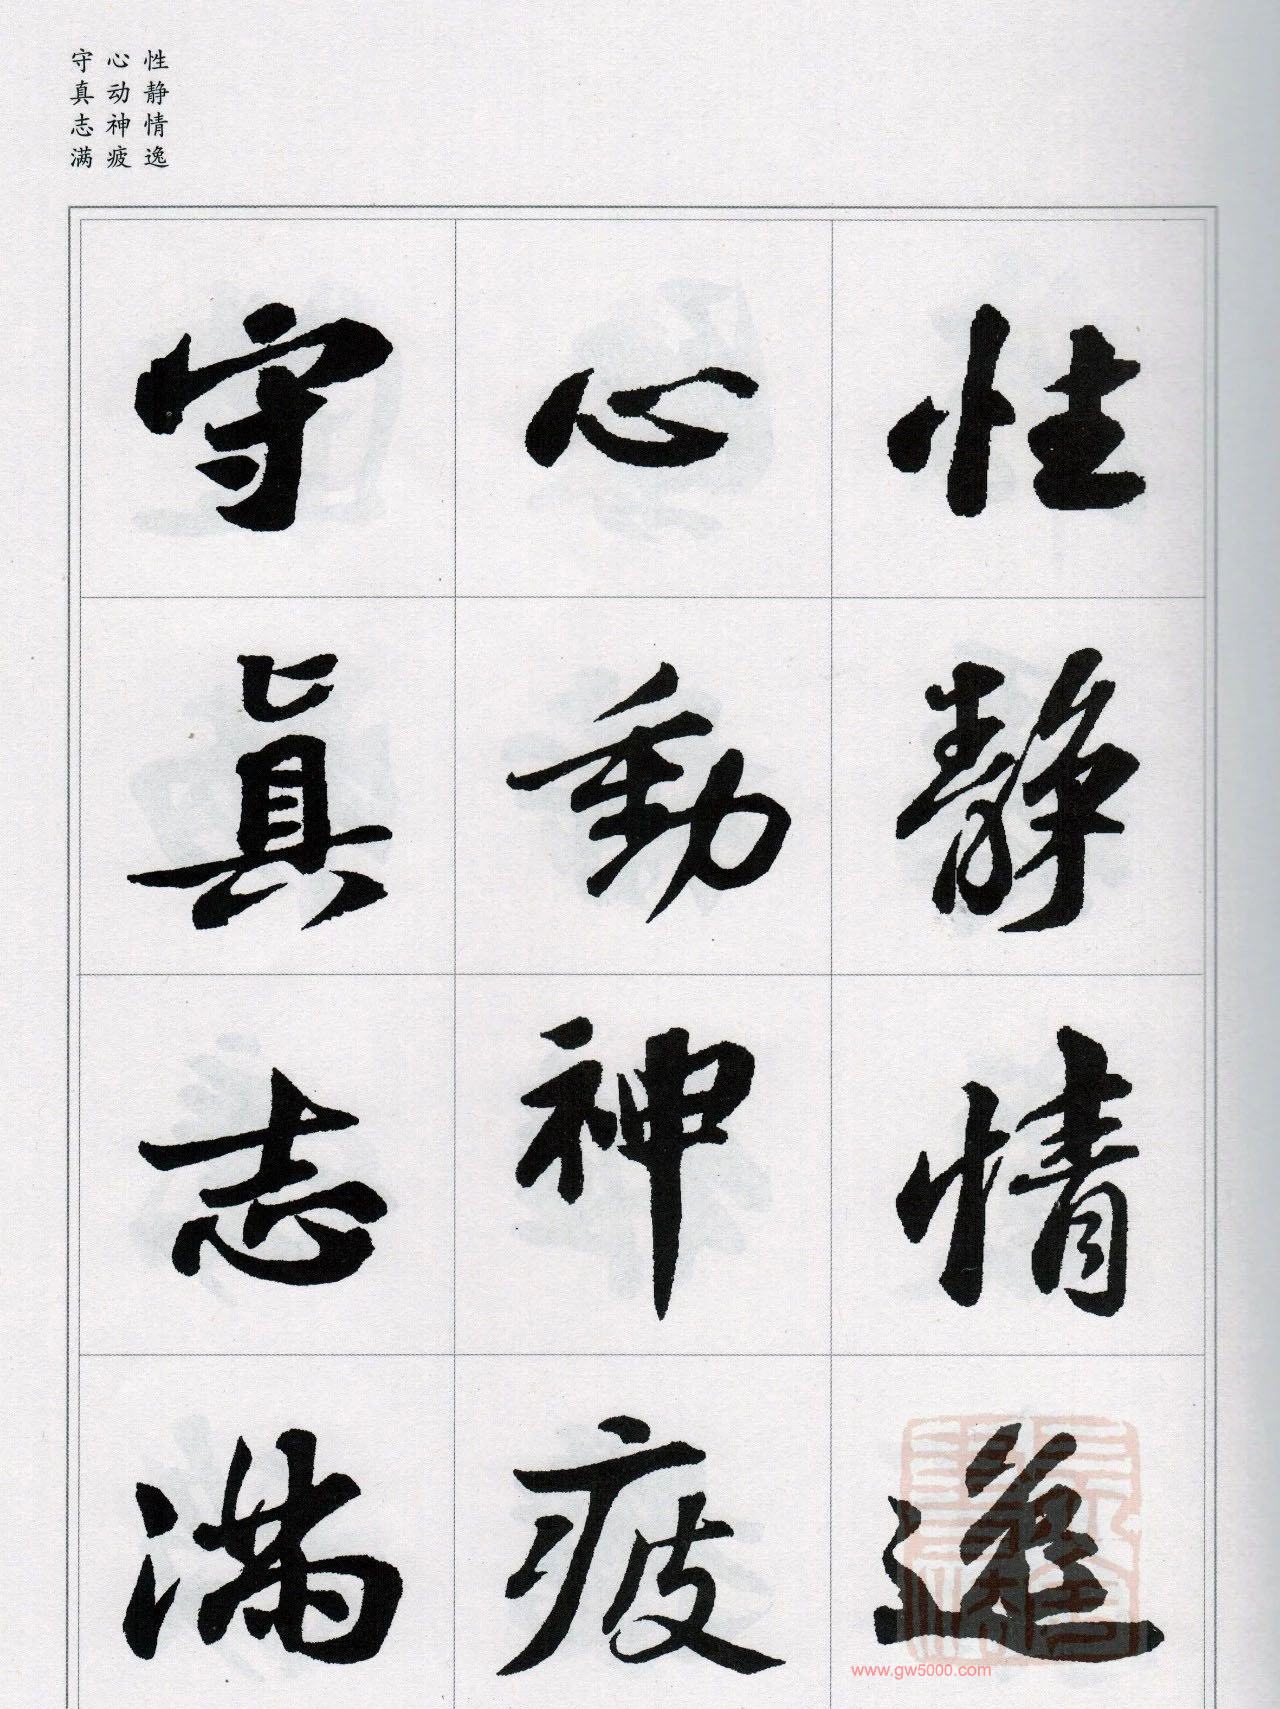 性静情逸
心动神疲
守真志满
性靜情逸
心動神疲
守真志滿
www.gw5000.com